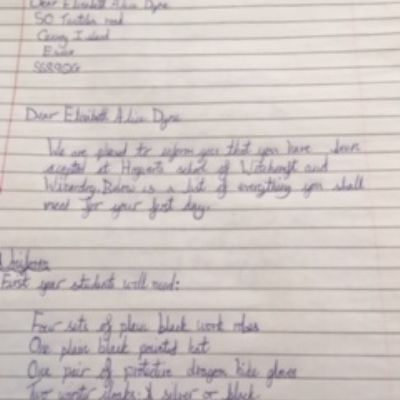 Dear Elizabeth Alice Dyne
50
Canvey Island
Essex
Dear Elizabeth Alice Dyne
We are pleased to inform you that you have been
accepted at Hogwarts school of Witchcraft and
Wizardry. Below is a list of everything you shall
need for your first day.
Uniform
First year students will need:
Four sets of plain black work robes
One plain black pointed hat
One pair of protective dragon hide gloves
Two winter cloaks: silver or black